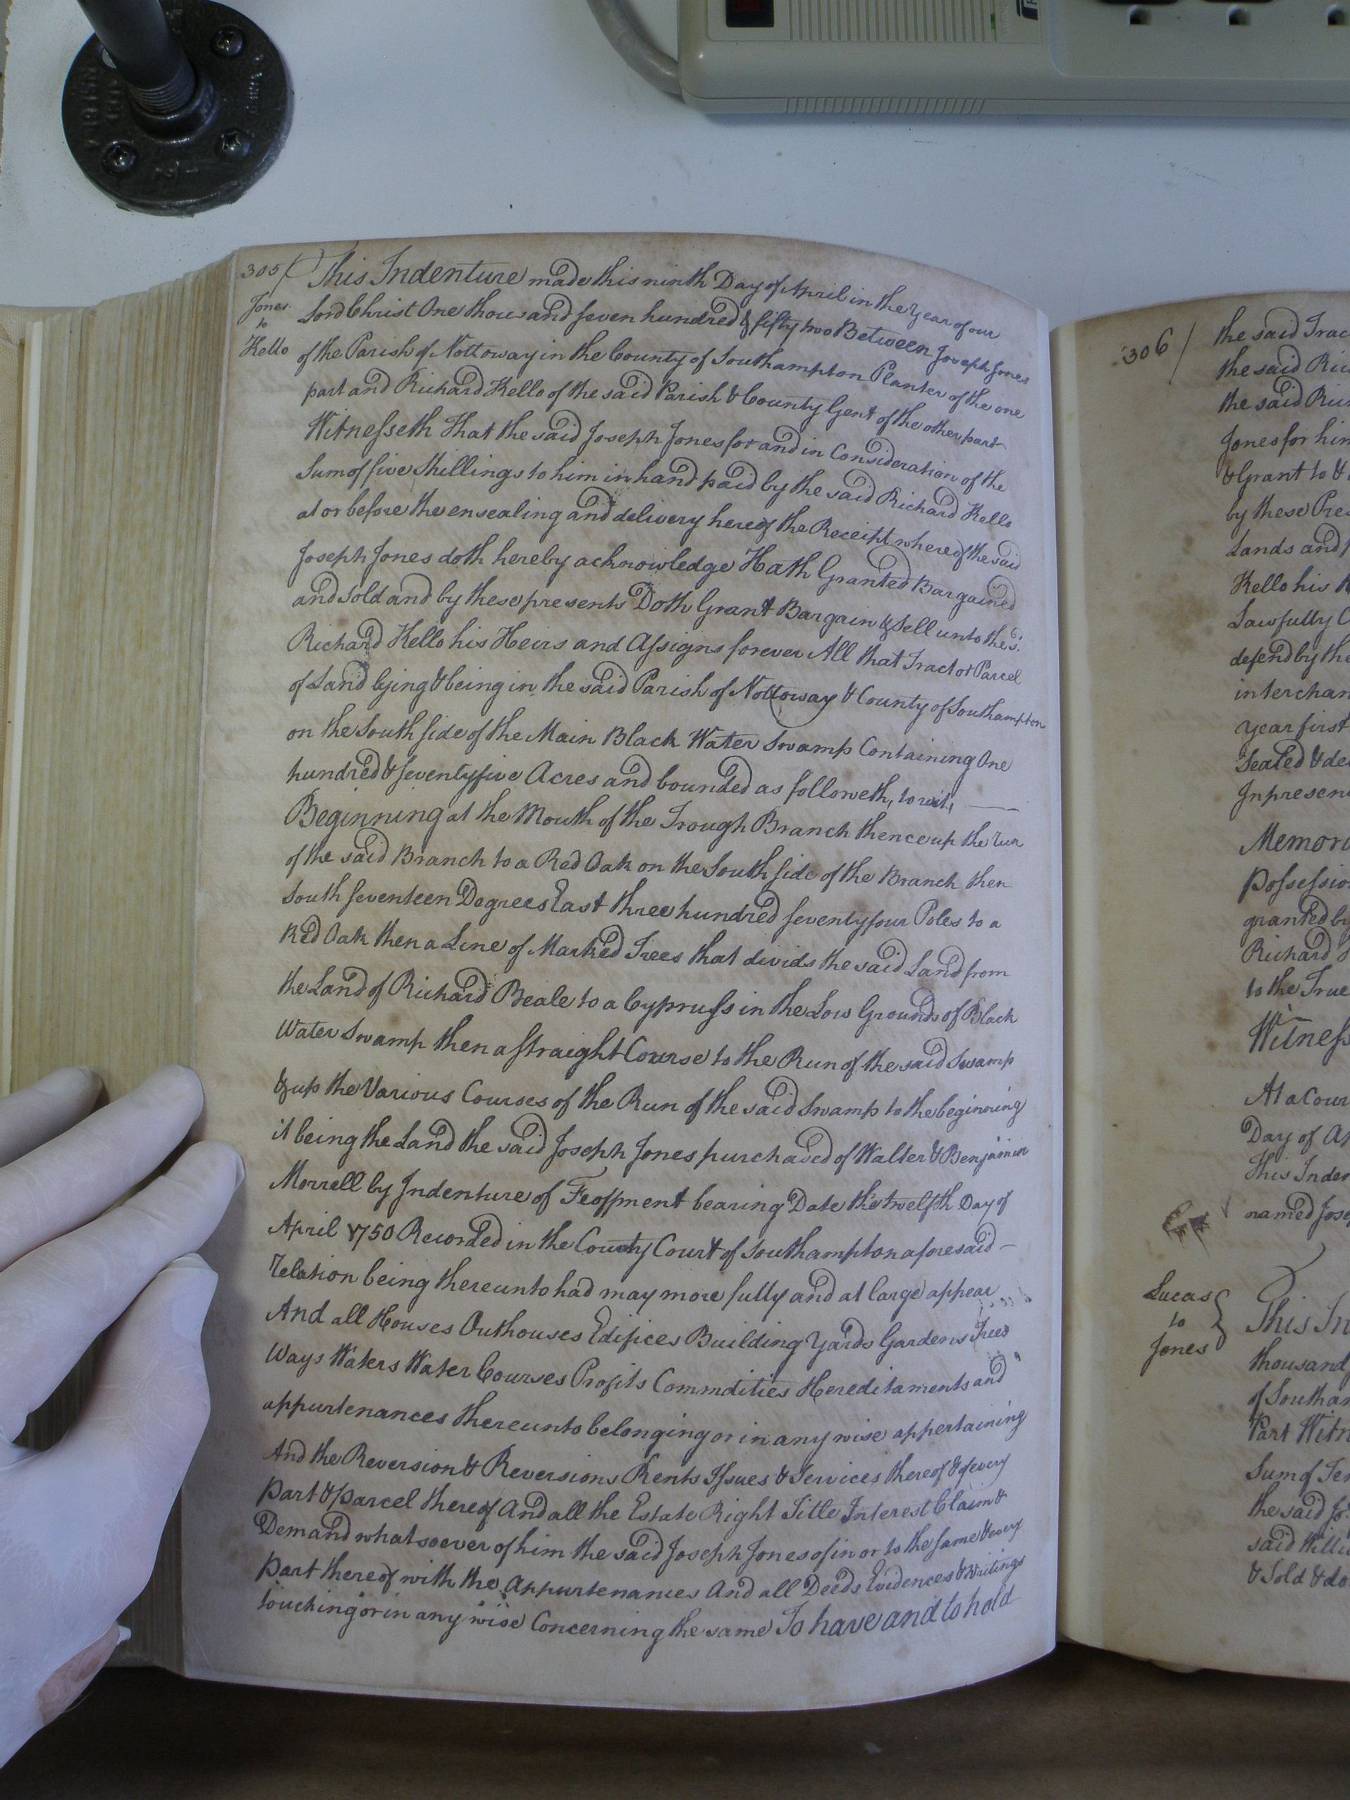 305/
Jones
to
Kello
This Indenture made this ninth Day of April in the Year of our
Lord Christ One thousand seven hundred & fifty two Between Joseph Jones
of the Parish of Nottoway in the County of Southampton Planter of the one
part and Richard Kello of the said Parish & County Gent of the other part
Witnesseth That the said Joseph Jones for and in Consideration of the
Sum of five Shillings to him in hand paid by the said Richard Kello
at or before the ensealing and delivery hereof the Receipt whereof the said
Joseph Jones doth hereby acknowledge Hath Granted Bargained
and Sold and by these presents Doth Grant Bargain & Sell unto the sd.
Richard Kello his Heirs and Assigns forever All that Tract or Parcel
of Land lying & being in the said Parish of Nottoway & County of Southampton
on the South side of the Main Black Water Swamp Containing One
hundred & seventy five Acres and bounded as followeth, to wit,
Beginning at the Mouth of the Trough Branch thence up the run
of the said Branch to a Red Oak on the South side of the Branch then
South seventeen Degrees East three hundred seventy four Poles to a
Red Oak then a Line of Marked Trees that divids the said Land from
the Land of Richard Beale to a Cypruss in the Low Grounds of Black
Water Swamp then a straight Course to the Run of the said Swamp
& up the Various Courses of the Run of the said Swamp to the beginning
it being the Land the said Joseph Jones purchased of Walter & Benjamin
Morrell by Indenture of Feoffment bearing Date the twelfth Day of
April 1750 Recorded in the County Court of Southampton aforesaid -
relation being thereunto had may more fully and at large appear
And all Houses Outhouses Edifices Building Yards Gardens Trees
Ways Waters Water Courses Profits Commdities Hereditaments and
appurtenances thereunto belonging or in any wise appertaining
And the Reversion & Reversions Rents Issues & Services thereof & of every
part & parcel thereof And all the Estate Right Title Interest Claim &
Demand whatsoever of him the said Joseph Jones of in or to the same & every
part thereof with the Appurtenances And all Deeds Evidences & Writings
touching or in any wise Concerning the same To have and to hold
306/
the said Trac
the said Ric
the said Ric
Jones for him
& Grant to &
by these Pre
Lands and
Kello his
Lawfully C
defend by the
interchan
year first
Sealed & de
In presen
Memor
Possessio
granted by
Richard
to the True
Witness
At a Cour
Day of A
This Inden
named Jose
Lucas
to
Jones
This In
thousand
of Southam
Part Witn
Sum of Ten
the said Jo
said Willi
& Sold & do